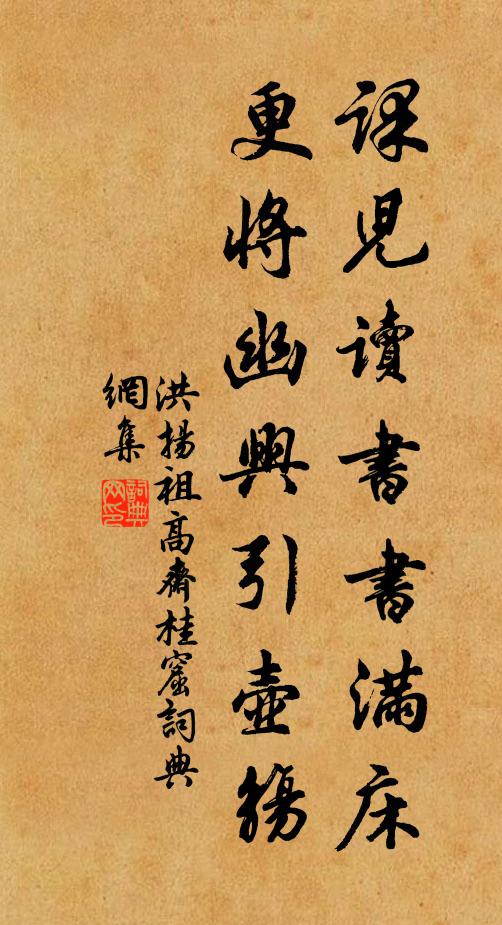 課児讀書書滿床
更將幽興引壺觴
洪揚祖高齋桂窟詞典
網集
詞典
网印